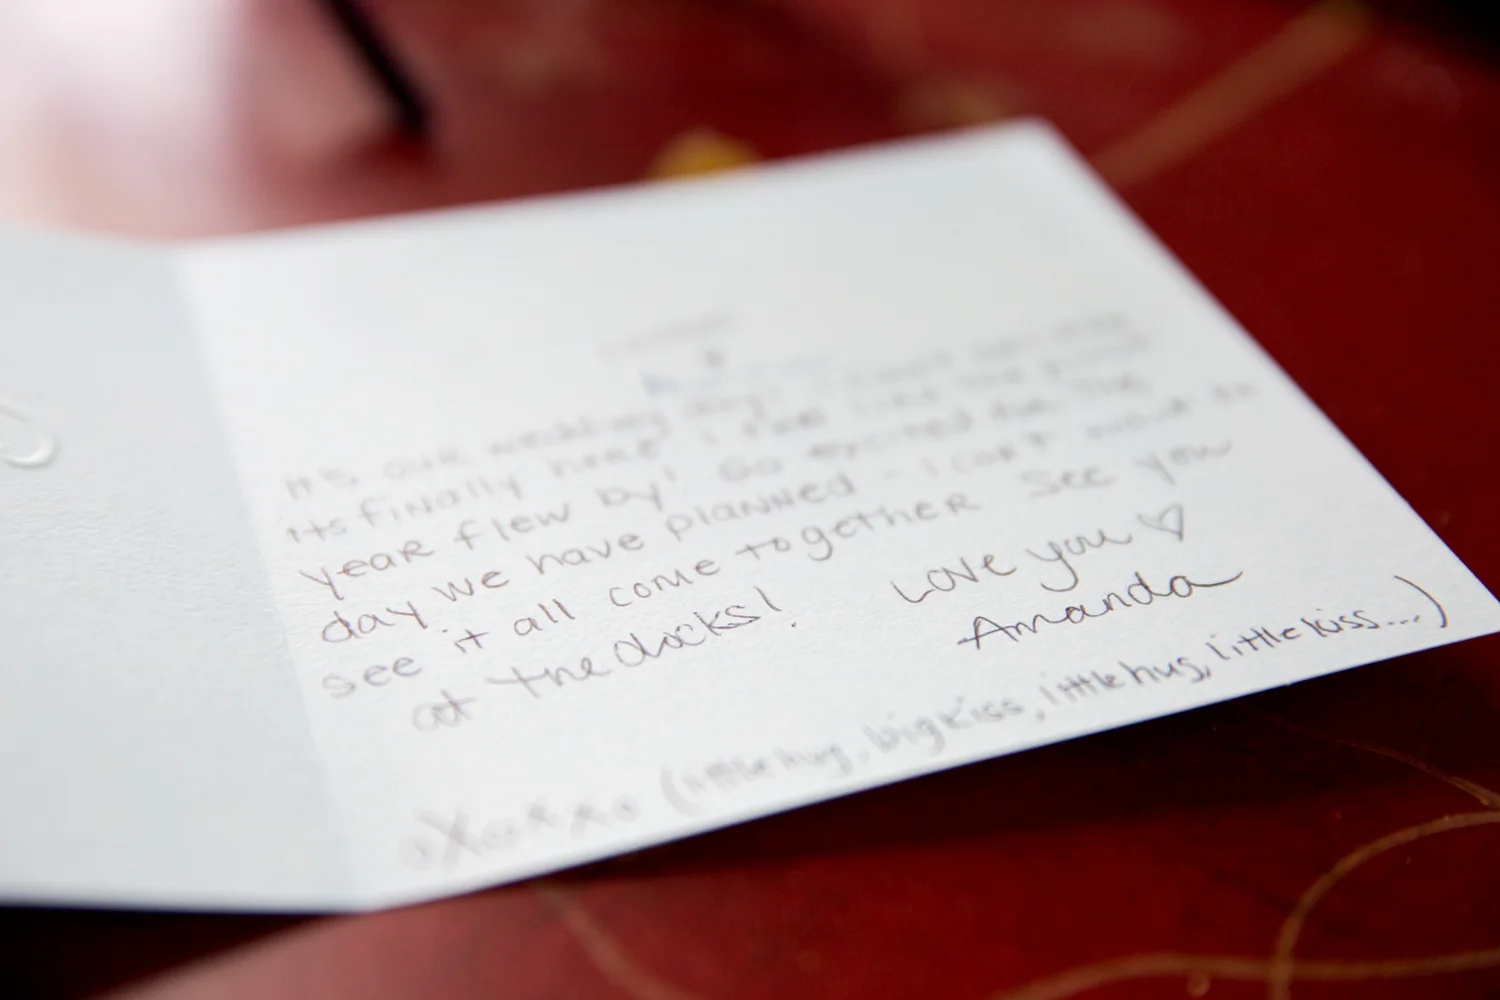 It's our wedding day! I can't believe
its finally here I feel like the past
year flew by! So excited for the
day we have planned - I can't wait to
see it all come together See you
at the docks!
Love you ♡
Amanda
(little hug, big kiss, little hug, little kiss...)